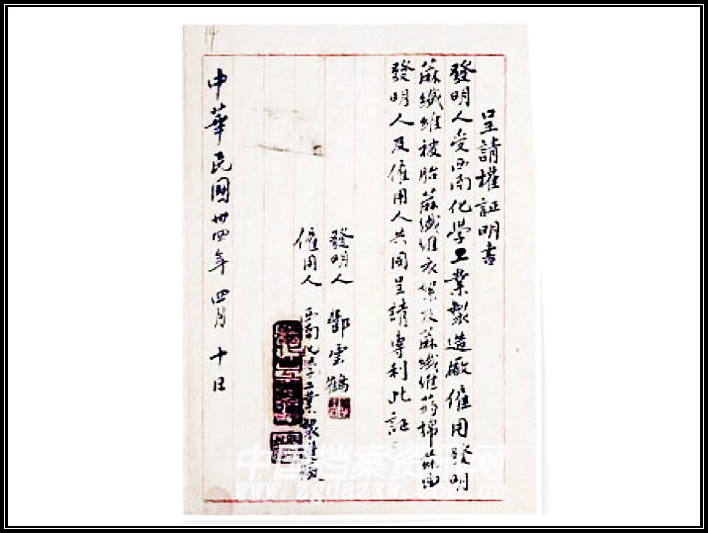 呈請權証明書
發明人受西南化學工業製造廠僱用發明
蔴纖維被胎蔴纖維衣絮及蔴纖維葯棉茲由
發明人及僱用人共同呈請專利此証
發明人 鄧雲鶴
僱用人 西南化學工業製造廠
中華民國卅四年四月十日
中国档案资讯网
www.zgdazxw.com.cn